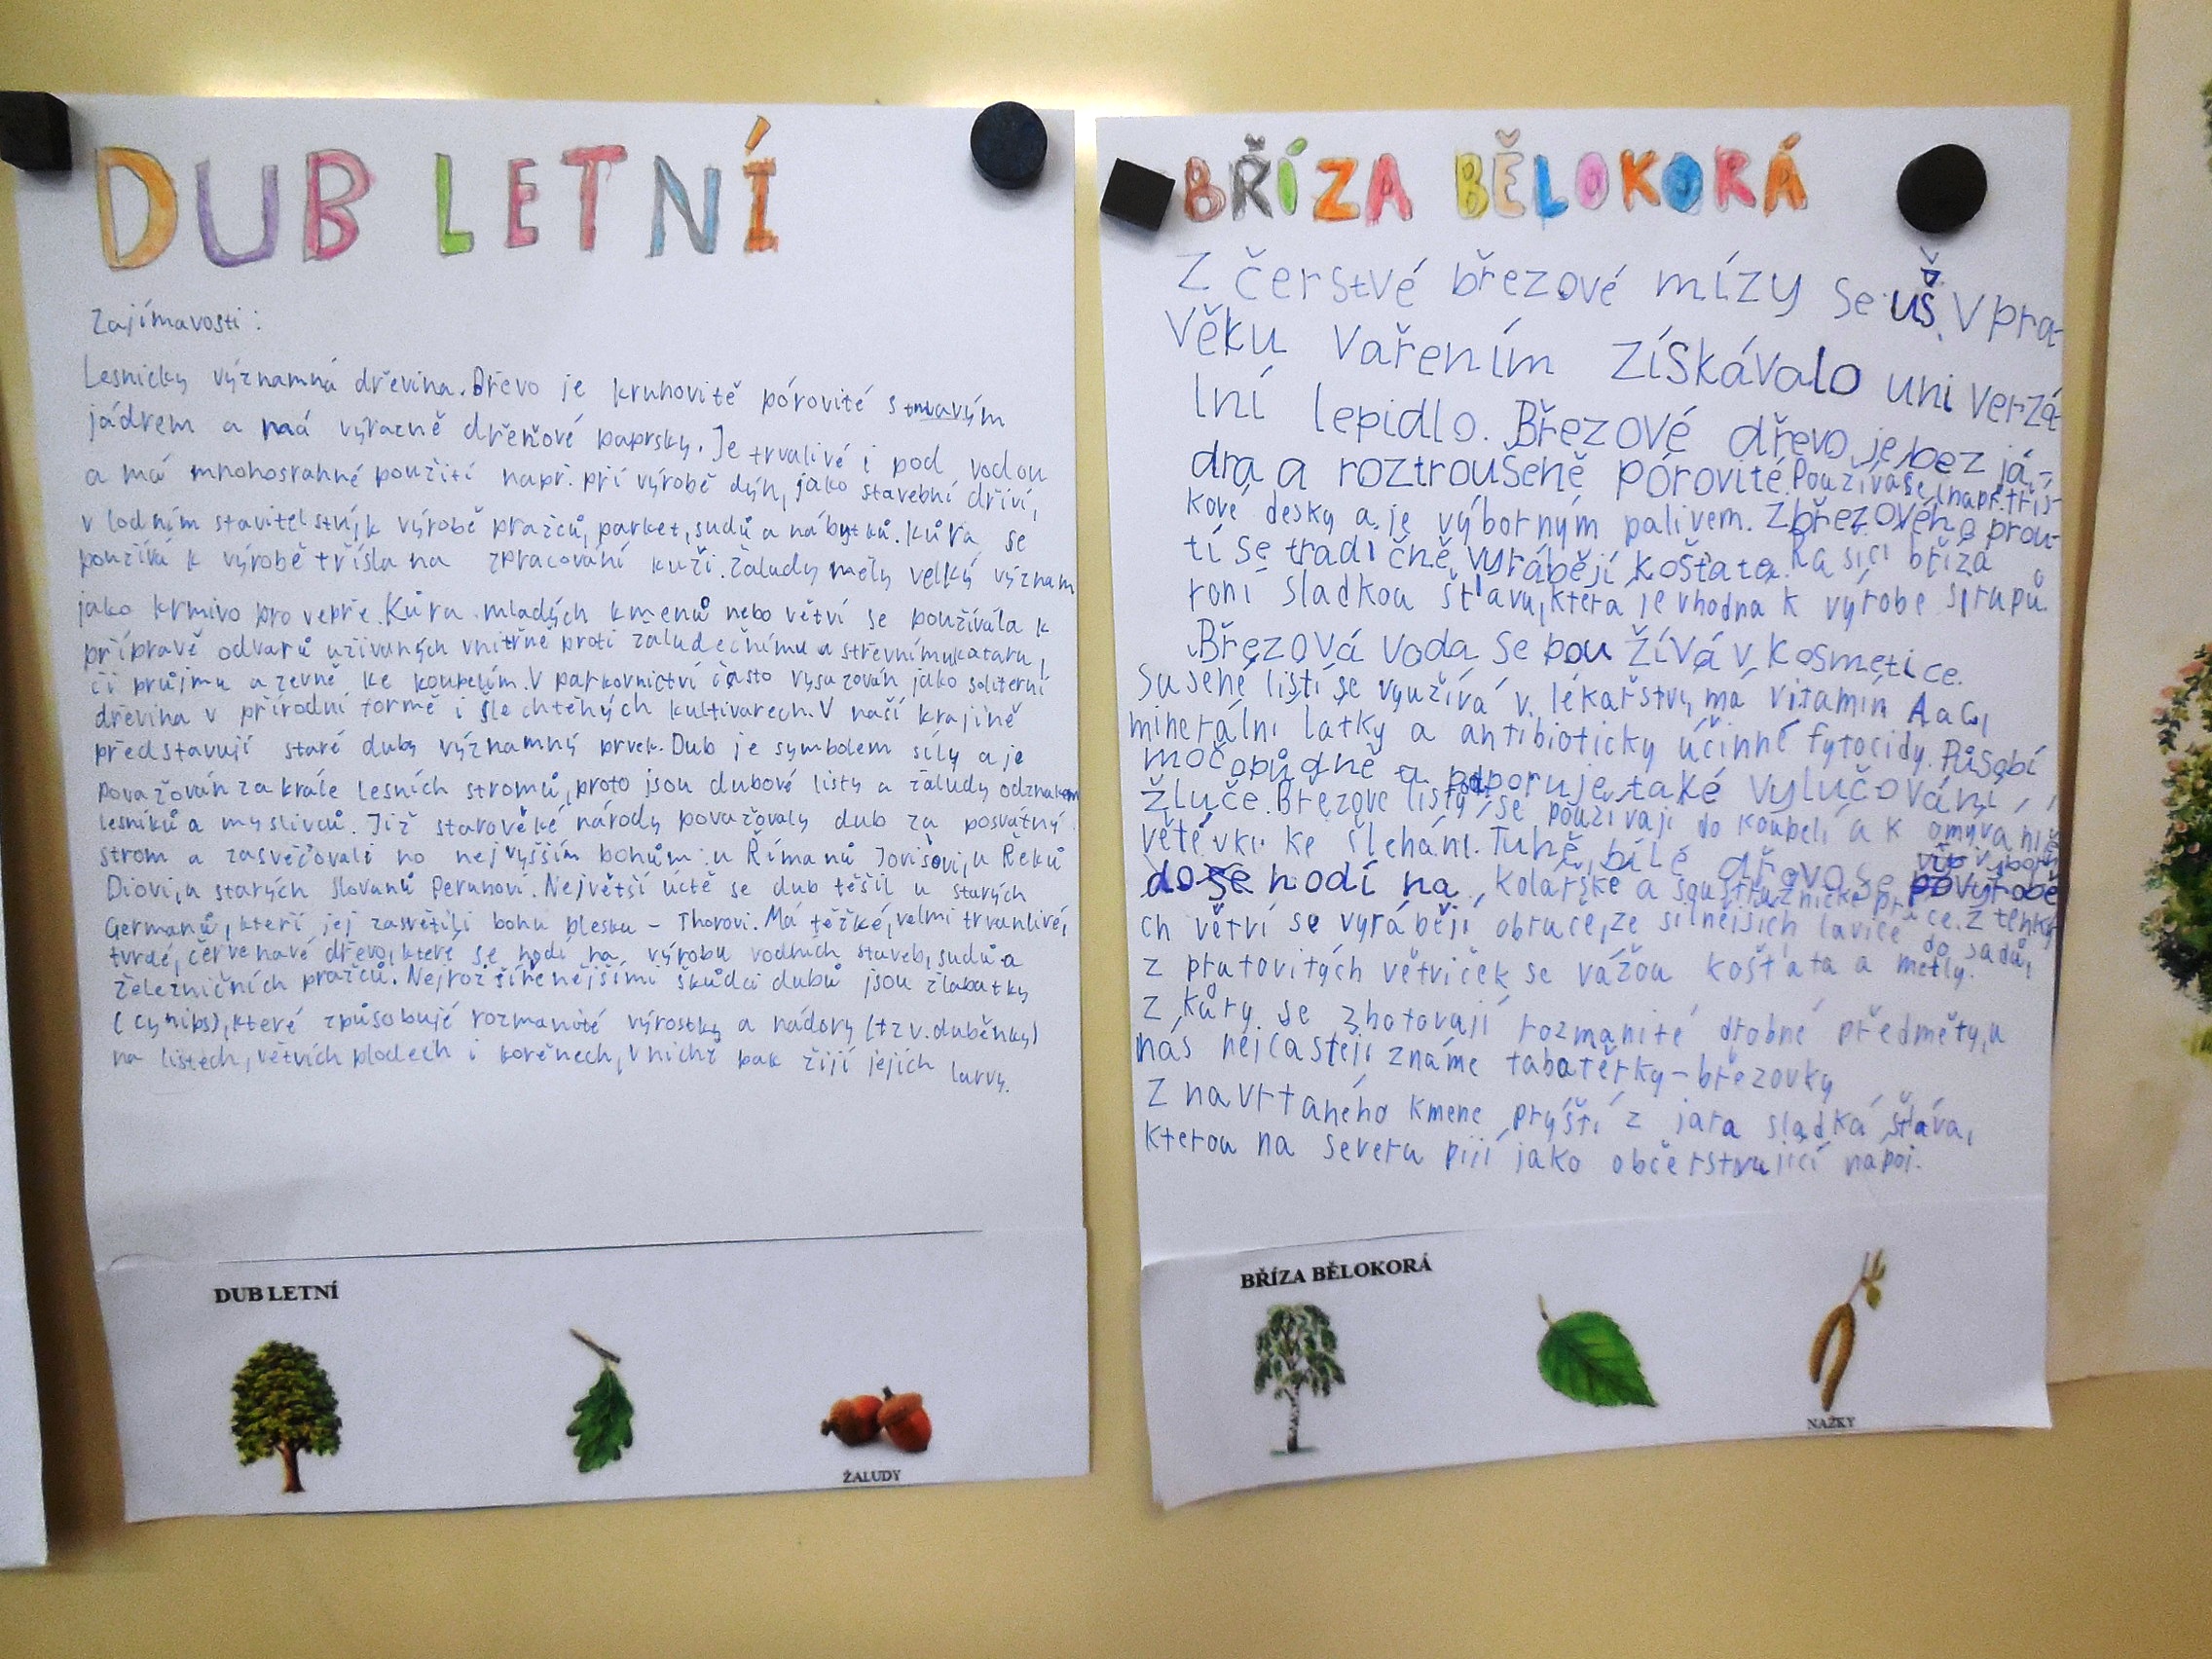 DUB LETNÍ
Zajímavosti:
Lesnicky významná dřevina. Dřevo je kruhovitě pórovité s tmavým
jádrem a má výrazně dřeňové paprsky. Je trvalivé i pod vodou
a má mnohosrahné použití např. pří výrobě dýh, jako stavební dříví,
v lodním stavitelství, k výrobě pražců, parket, sudů a nábytků. Kůra se
používá k výrobě třísla na zpracování kuží. Žaludy měly velký význam
jako krmivo pro vepře. Kůra mladých kmenů nebo větví se používala k
přípravě odvarů užívaných vnitřně proti žaludečnímu a střevnímu kataru,
či průjmu a zevně ke koupelím. V parkovnictví často vysazován jako soliterní
dřevina v přírodní formě i šlechtěných kultivarech. V naší krajině
představují staré duby významný prvek. Dub je symbolem síly a je
považován za krále lesních stromů, proto jsou dubové listy a žaludy odznakem
lesníků a myslivců. Již starověké národy považovaly dub za posvátný
strom a zasvěčovali ho nejvyšším bohům: u Římanů Jovišovi, u Řeků
Diovi, u starých Slovanů Perunovi. Největší úctě se dub těšil u starých
Germanů, kteří jej zasvětili bohu blesku - Thorovi. Má těžké, velmi trvanlivé,
tvrdé, červenavé dřevo, které se hodí na výrobu vodních staveb, sudů a
železničních pražců. Nejrozšířenějšími škůdci dubů jsou žlabatky
(cynips), které způsobuje rozmanité výrostky a nádory (tzv. duběnky)
na listech, větvích plodech i kořenech, v nichž pak žijí jejich larvy.
DUB LETNÍ
ŽALUDY
BŘÍZA BĚLOKORÁ
Z čerstvé březové mízy se uš v pra-
věku vařením získávalo univerzá-
lní lepidlo. Březové dřevo je bez já-
dra a roztroušeně pórovité. Používá se (např. třís-
kové desky a je výborným palivem. Z březového prou-
tí se tradičně vyrábějí košťata. Na sicí bříza
roní sladkou šťávu, která je vhodná k výrobe sirupů.
Březová voda se používá v kosmetice.
Sušené listí se využívá v lékařstvy, má vitamin A a C,
minerální latky a antibioticky účinné fytocidy. Působí
močopudně a podporuje také vylučování
žluče. Březove listy se používají do koupelí a k omývání
větévku ke šlehání. Tuhé, bílé dřovo se výborně
do se hodí na kolářské a soustružnické práce. Z tenký
ch větví se vyrábějí obruce, ze silnějších lavice do sadů,
z prutovitých větviček se vážou košťata a metly.
Z kůry se zhotovají rozmanité drobné předměty, u
nás nejčastěji známe tabatěrky - březovky
Z navrtaného kmene prýští z jara sladká šťáva,
kterou na severu pijí jako občerstvující nápoj.
BŘÍZA BĚLOKORÁ
NAŽKY